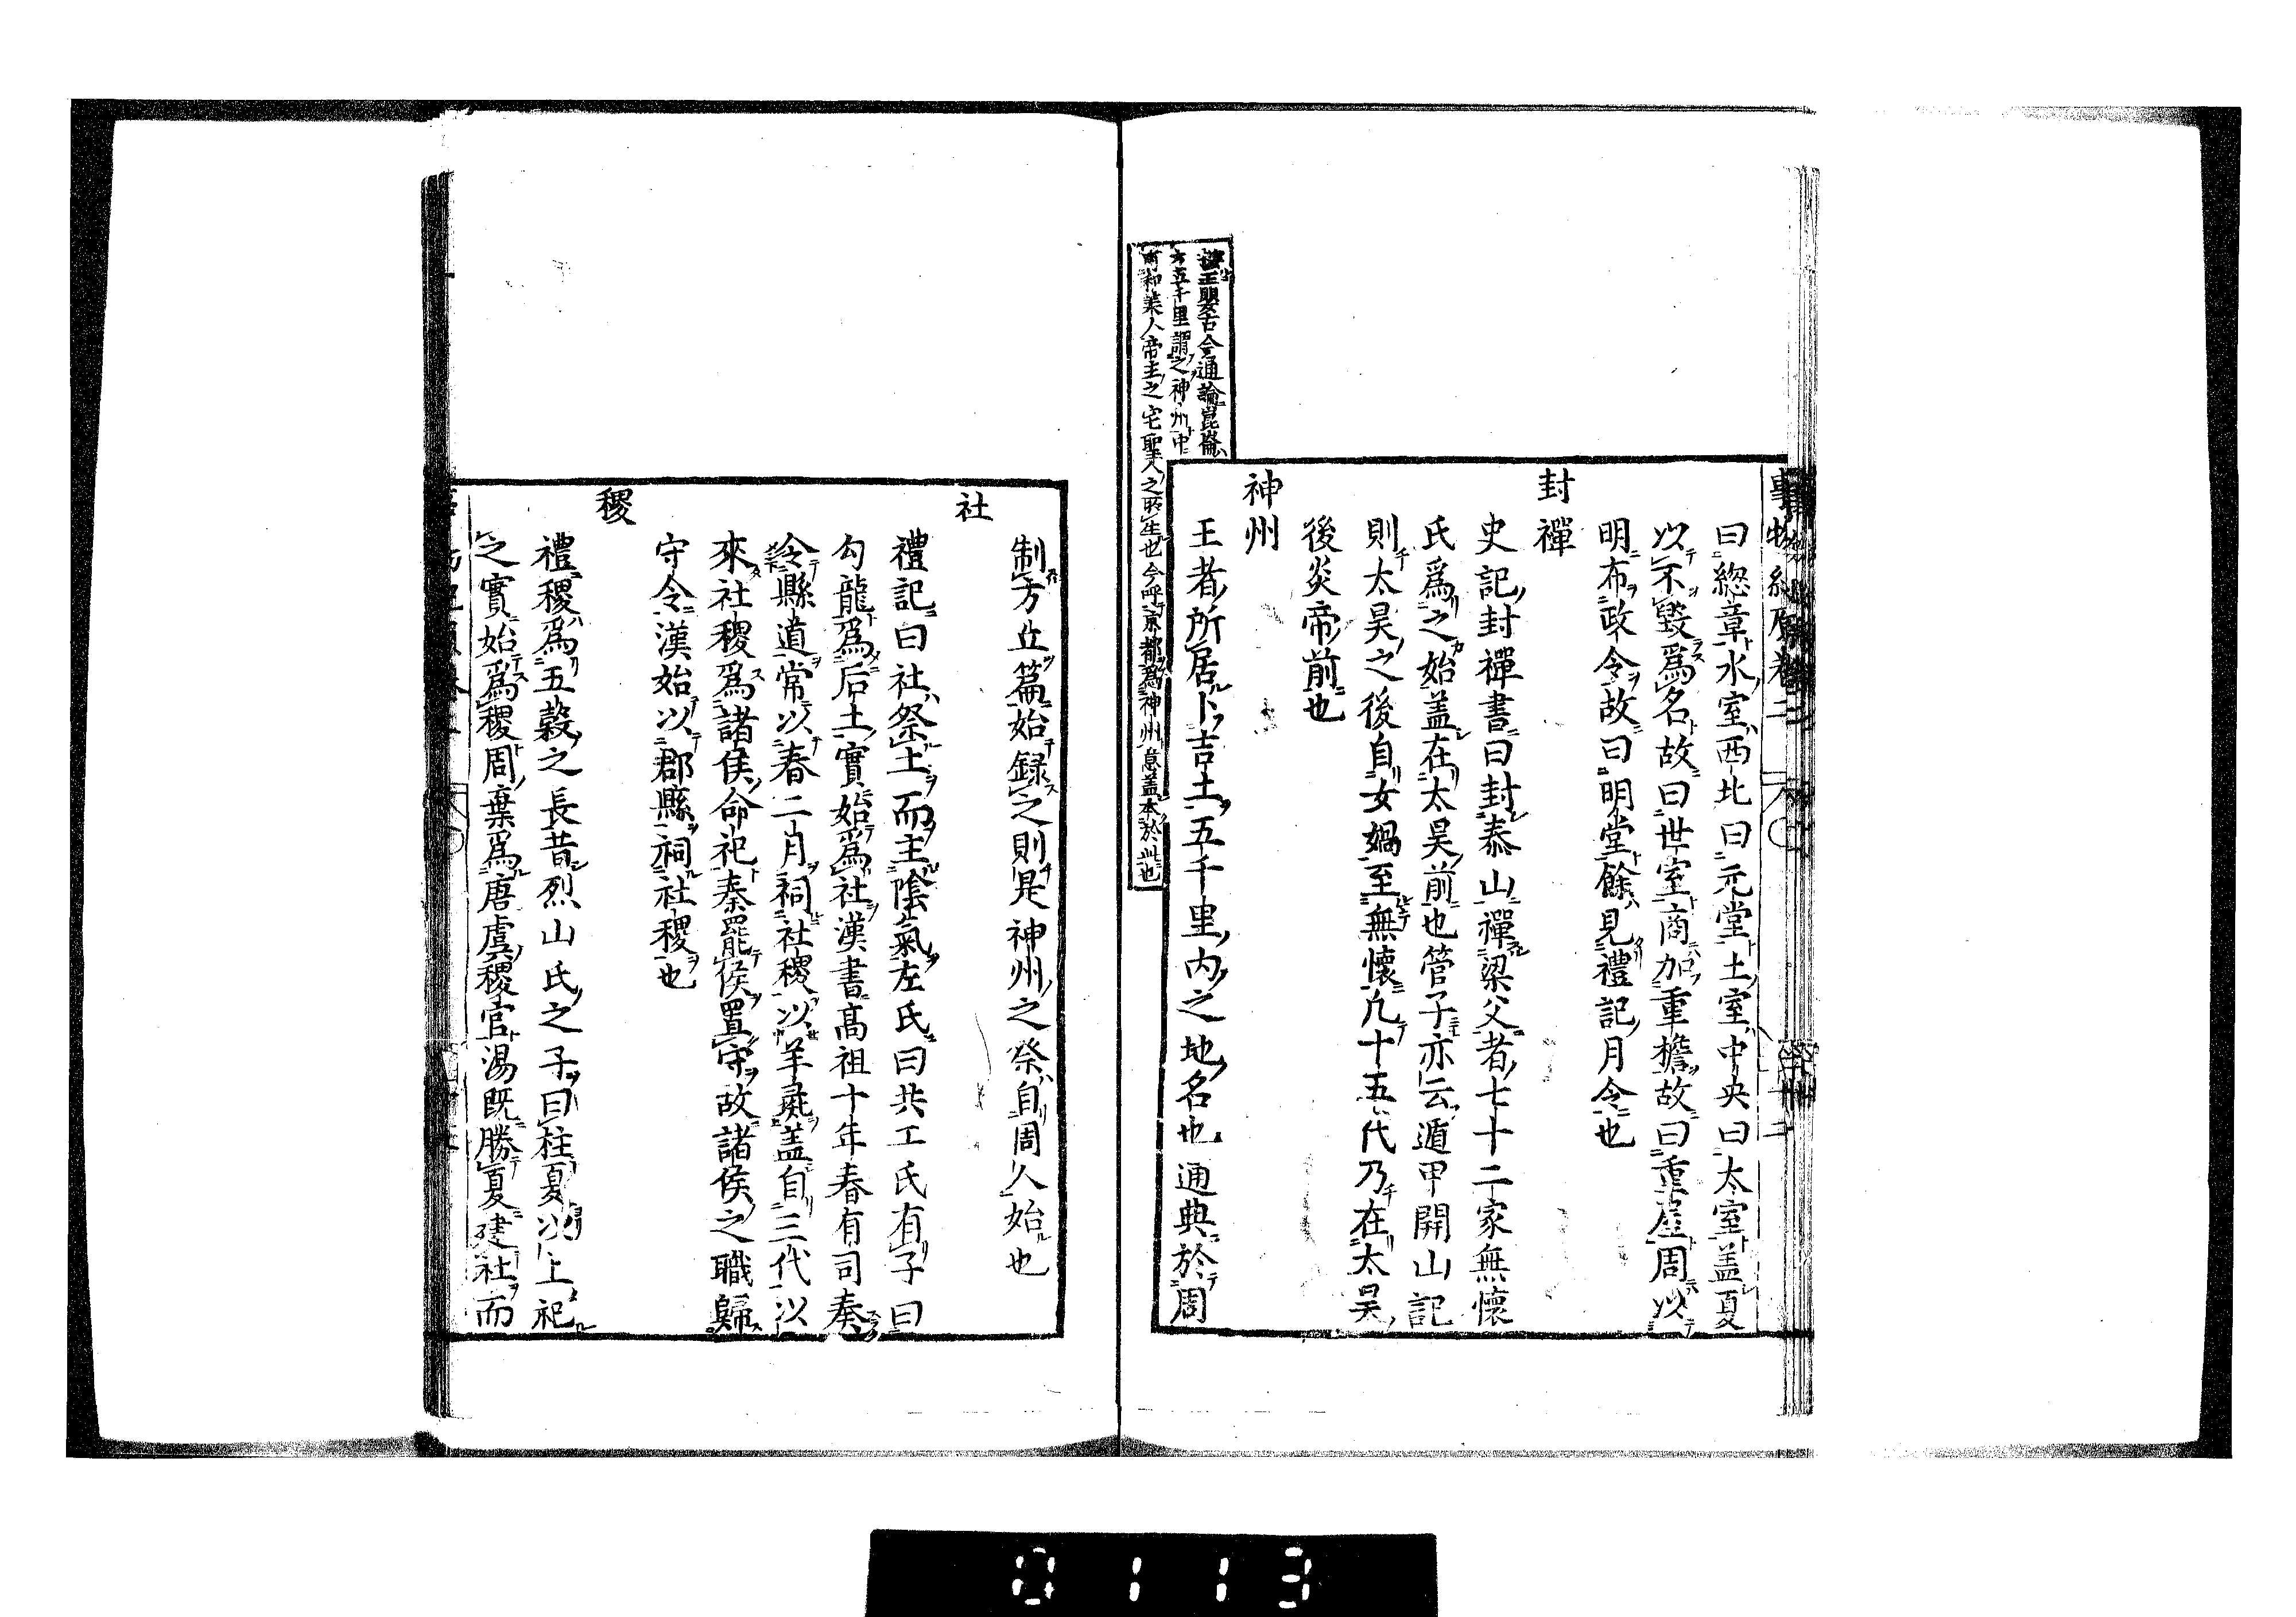 事物紀原卷二
曰總章水室西北曰元堂土室中央曰太室盖夏
以不毀爲名故曰世室商加重檐故曰重屋周以
明布政令故曰明堂餘見禮記月令也
封禪
史記封禪書曰封泰山禪梁父者七十二家無懷
氏爲之始盖在太昊前也管子亦云遁甲開山記
則太昊之後自女媧至無懷凡十五代乃在太昊
後炎帝前也
神州
王者所居卜吉土五千里内之地名也通典於周
王嬰古今通論崑崙
方五千里謂之神州中
有和羙人帝主之宅聖人之所生也今呼京都爲神州意盖本於此也
制方丘篇始録之則是神州之祭自周人始也
社
禮記曰社祭土而主陰氣左氏曰共工氏有子曰
勾龍爲后土實始爲社漢書髙祖十年春有司奏
令縣道常以春二月祠社稷以羊彘盖自三代以
來社稷爲諸侯命祀秦罷侯置守故諸侯之職歸
守令漢始以郡縣祠社稷也
稷
禮稷爲五穀之長昔烈山氏之子曰柱夏以上祀
之實始爲稷周棄爲唐虞稷官湯既勝夏建社而
0113